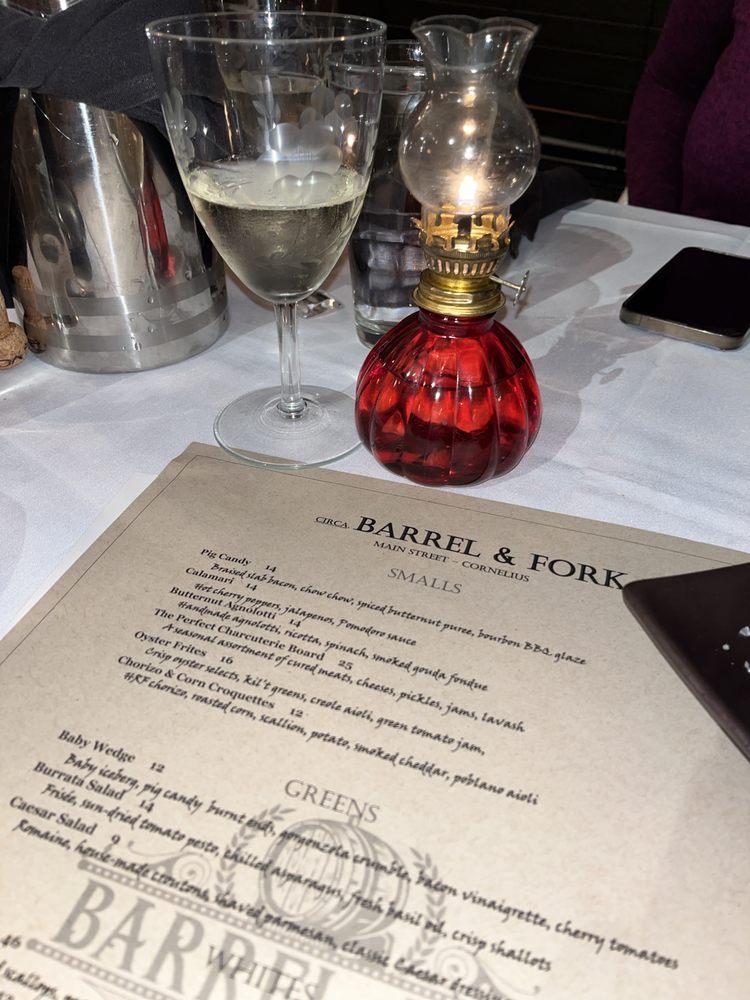 CIRCA BARREL & FORK
MAIN STREET – CORNELIUS
SMALLS
Pig Candy 14
Braised slab bacon, chow chow, spiced butternut puree, bourbon BBQ glaze
Calamari 14
Hot cherry peppers, jalapenos, Pomodoro sauce
Butternut Agnolotti 14
Handmade agnolotti, ricotta, spinach, smoked gouda fondue
The Perfect Charcuterie Board 25
A seasonal assortment of cured meats, cheeses, pickles, jams, lavash
Oyster Frites 16
Crisp oyster selects, kil't greens, creole aioli, green tomato jam,
Chorizo & Corn Croquettes 12
HRF chorizo, roasted corn, scallion, potato, smoked cheddar, poblano aioli
GREENS
Baby Wedge 12
Baby iceberg, pig candy burnt ends, gorgonzola crumble, bacon vinaigrette, cherry tomatoes
Burrata Salad 14
Frisée, sun-dried tomato pesto, chilled asparagus, fresh basil oil, crisp shallots
Caesar Salad 9
Romaine, house-made croutons, shaved parmesan, classic Caesar dressing
BARREL
WHITES
46
scallops,